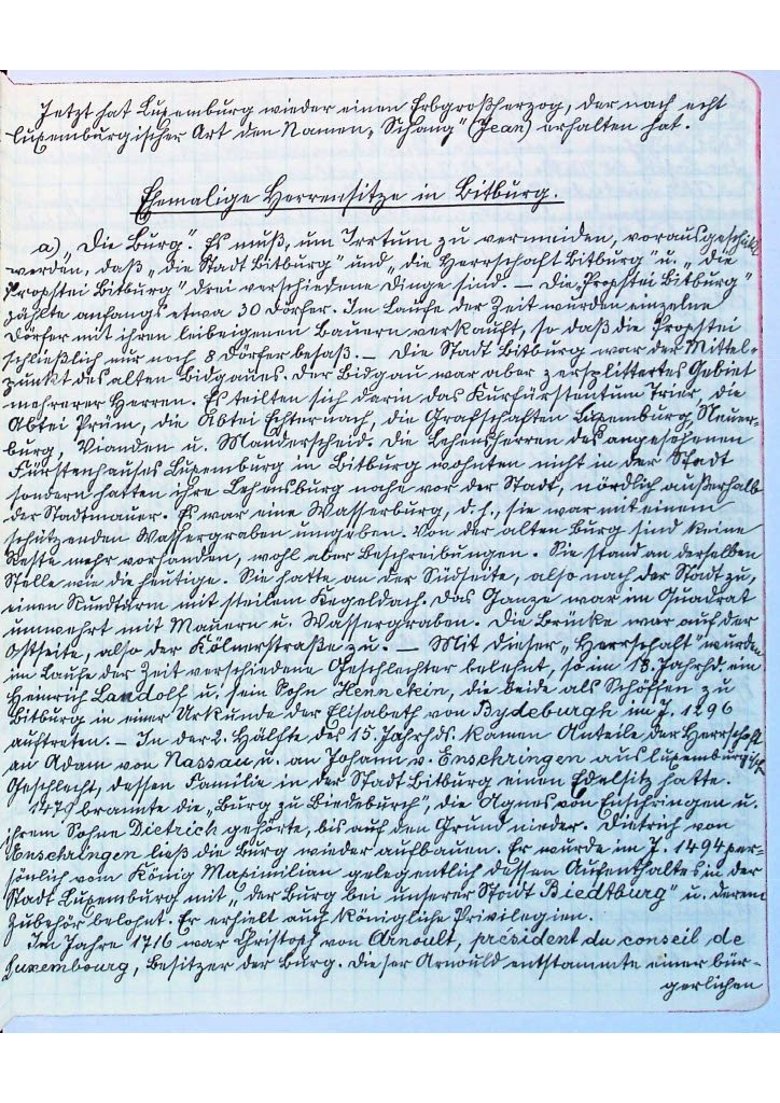 Jetzt hat Luxemburg wieder einen Erbgroßherzog, der nach echt
luxemburgischer Art den Namen „Schang" (Jean) erhalten hat.
Ehemalige Herrensitze in Bitburg.
a) „Die Burg". Es muß, um Irrtum zu vermeiden, vorausgeschickt
werden, daß „die Stadt Bitburg" und „die Herrschaft Bitburg" u. „die
Propstei Bitburg" drei verschiedene Dinge sind. – Die „Propstei Bitburg"
zählte anfangs etwa 30 Dörfer. Im Laufe der Zeit wurden einzelne
Dörfer mit ihren leibeigenen Bauern verkauft, so daß die Propstei
schließlich nur noch 8 Dörfer besaß. – Die Stadt Bitburg war der Mittel-
punkt des alten Bidgaues. Der Bidgau war aber zersplittertes Gebiet
mehrerer Herren. Es teilten sich darin das Kurfürstentum Trier, die
Abtei Prüm, die Abtei Echternach, die Grafschaften Luxemburg, Neuer-
burg, Vianden u. Manderscheid. Die Lehensherren des angesehenen
Fürstenhauses Luxemburg in Bitburg wohnten nicht in der Stadt
sondern hatten ihre Lehensburg nahe vor der Stadt, nördlich außerhalb
der Stadtmauer. Es war eine Wasserburg, d. h., sie war mit einem
schützenden Wassergraben umgeben. Von der alten Burg sind keine
Reste mehr vorhanden, wohl aber Beschreibungen. Sie stand an derselben
Stelle wie die heutige. Sie hatte an der Südseite, also nach der Stadt zu,
einen Rundturm mit steilem Kegeldach. Das Ganze war im Quadrat
umwehrt mit Mauern u. Wassergraben. Die Brücke war auf der
Ostseite, also der Kölnerstraße zu. – Mit dieser „Herrschaft" wurden
im Laufe der Zeit verschiedene Geschlechter belehnt, so im 13. Jahrhd. ein
Heinrich Landolf u. sein Sohn Hennekein, die beide als Schöffen zu
Bitburg in einer Urkunde der Elisabeth von Bydeburgh im J. 1296
auftreten. – In der 2. Hälfte des 15. Jahrhds. kamen Anteile der Herrschaft
an Adam von Nassau u. an Johann v. Enschringen aus luxemburgisch.
Geschlecht, dessen Familie in der Stadt Bitburg einen Edelsitz hatte.
1479 brannte die „Burg zu Biedeburch", die Agnes von Enschringen u.
ihrem Sohne Dietrich gehörte, bis auf den Grund nieder. Dietrich von
Enschringen ließ die Burg wieder aufbauen. Er wurde im J. 1494 per-
sönlich vom König Maximilian gelegentlich dessen Aufenthaltes in der
Stadt Luxemburg mit „der Burg bei unserer Stadt Biedtburg" u. deren
Zubehör belohnt. Er erhielt auch königliche Privilegien.
Im Jahre 1716 war Christoph von Arnoult, président du conseil de
Luxembourg, Besitzer der Burg. Dieser Arnould entstammte einer bür-
gerlichen